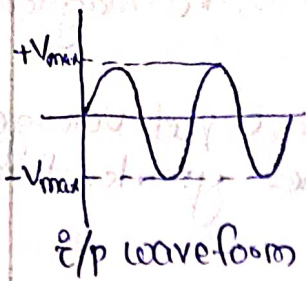 +Vmax
-Vmax
i/p waveform